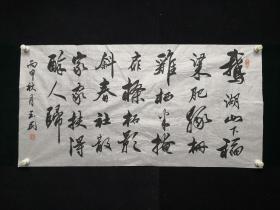 鵞湖山下稻
粱肥豚栅
雞栖半掩
扉桑柘影
斜春社散
家家扶得
酔人歸
丙申秋月玉